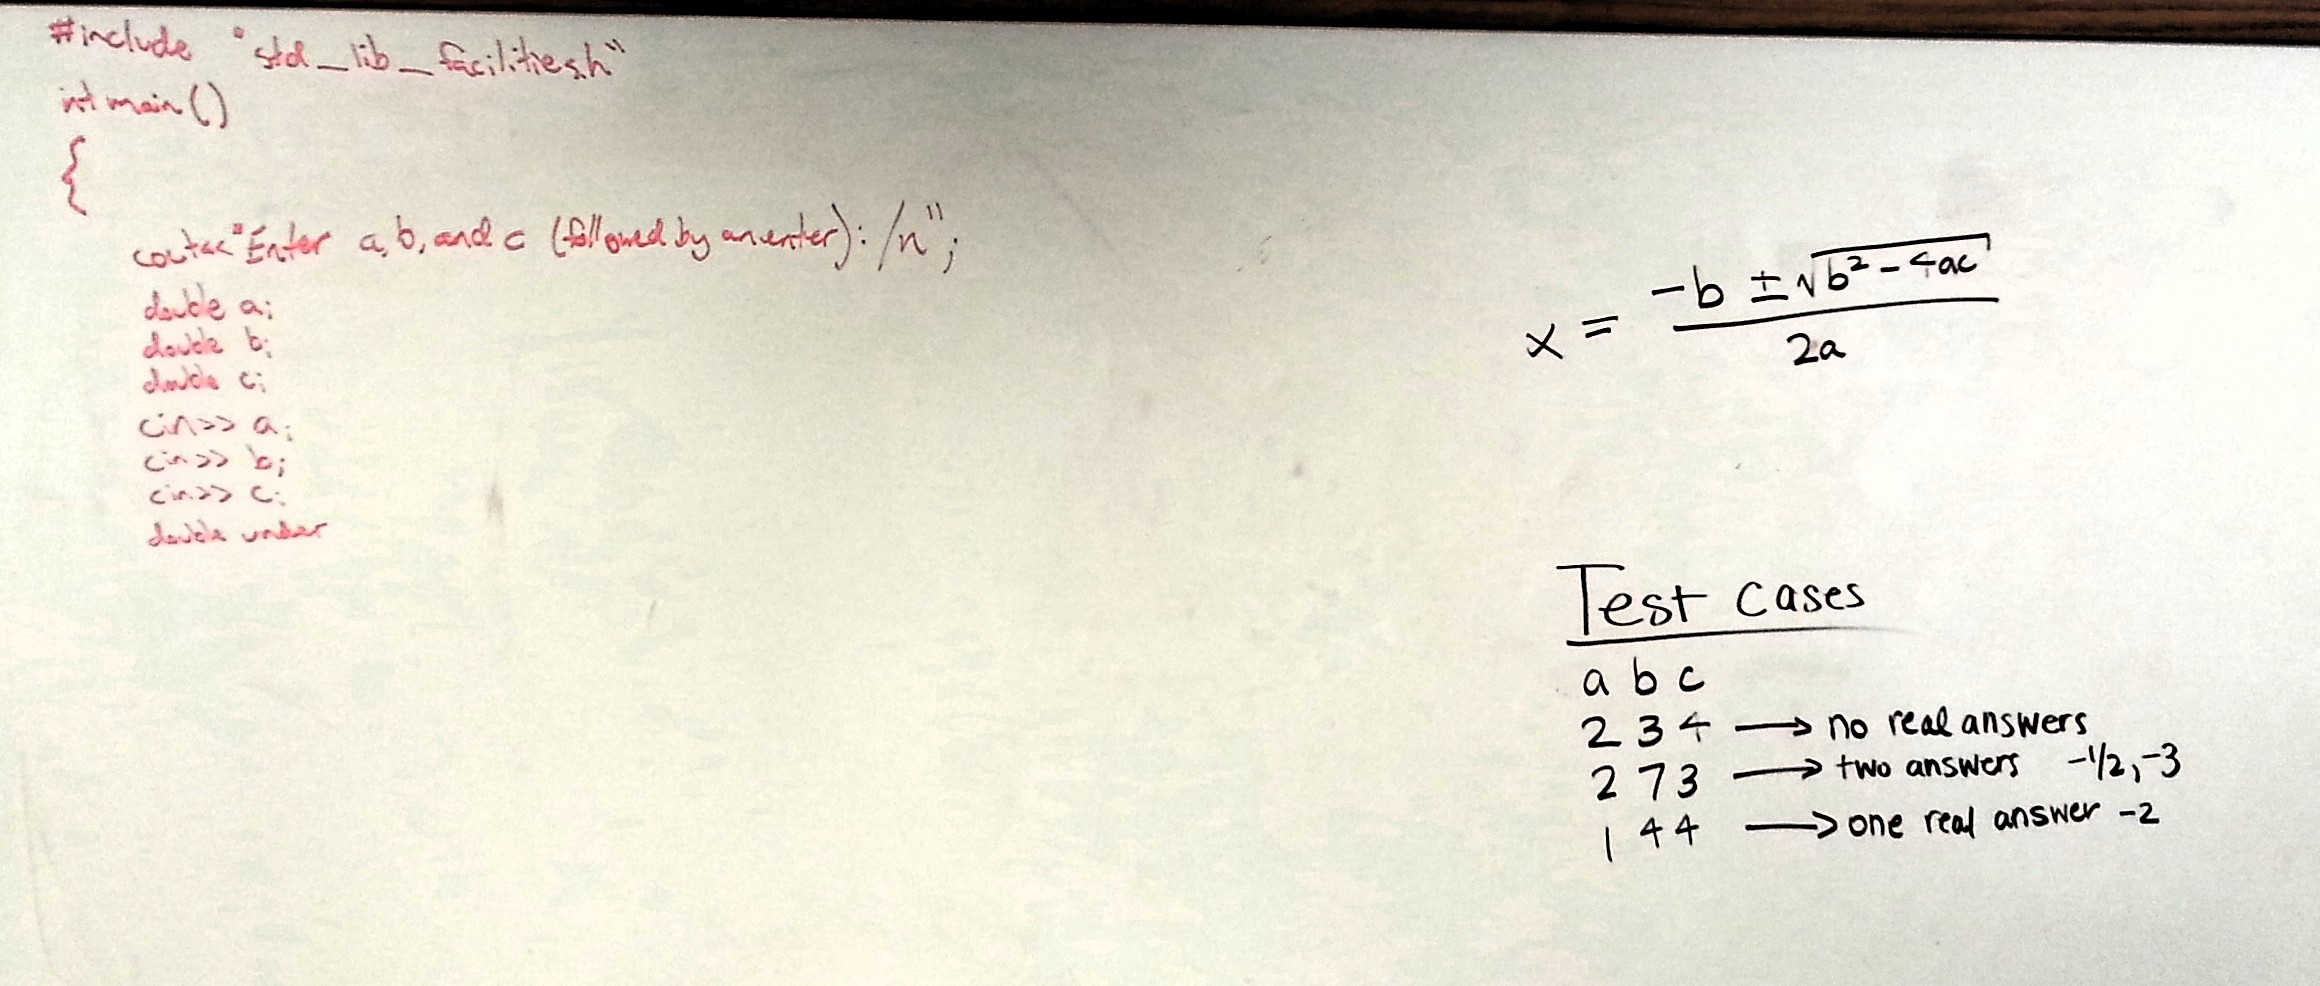 #include "std_lib_facilities.h"
int main()
{
cout<<"Enter a, b, and c (followed by an enter): /n";
double a;
double b;
double c;
cin>> a;
cin>> b;
cin>> c;
double under
x = -b ± √b² - 4ac / 2a
Test cases
a b c
2 3 4 → no real answers
2 7 3 → two answers -1/2, -3
1 4 4 → one real answer -2